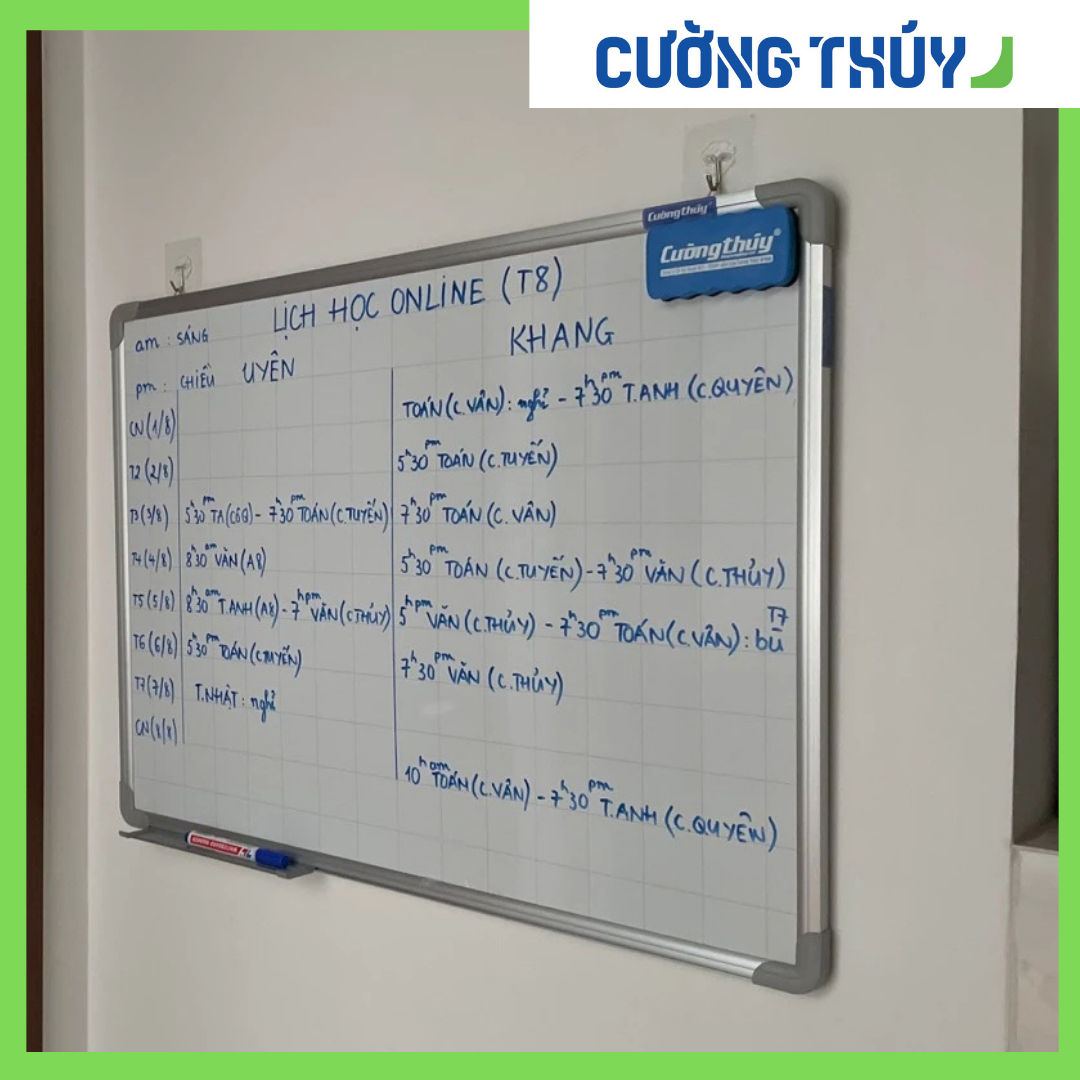 CƯỜNG THÚY
Cườngthúy®
Cườngthúy®
LỊCH HỌC ONLINE (T8)
am : SÁNG
pm : CHIỀU
UYÊN
KHANG
CN (1/8)
TOÁN (C.VÂN): nghỉ - 7h30 pm T.ANH (C.QUYÊN)
T2 (2/8)
5h30 pm TOÁN (C.TUYẾN)
T3 (3/8) 5h30 pm TA (CÔQ) - 7h30 pm TOÁN (C.TUYẾN)
7h30 pm TOÁN (C. VÂN)
T4 (4/8) 8h30 am VĂN (A8)
5h30 pm TOÁN (C.TUYẾN) - 7h30 pm VĂN (C.THỦY)
T5 (5/8) 8h30 am T.ANH (A8) - 7h pm VĂN (C THỦY)
5h pm VĂN (C.THỦY) - 7h30 pm TOÁN (C.VÂN): bù T7
T6 (6/8) 5h30 pm TOÁN (C TUYẾN)
7h30 pm VĂN (C.THỦY)
T7 (7/8) T.NHẬT : nghỉ
CN (8/8)
10h am TOÁN (C.VÂN) - 7h30 pm T.ANH (C.QUYÊN)